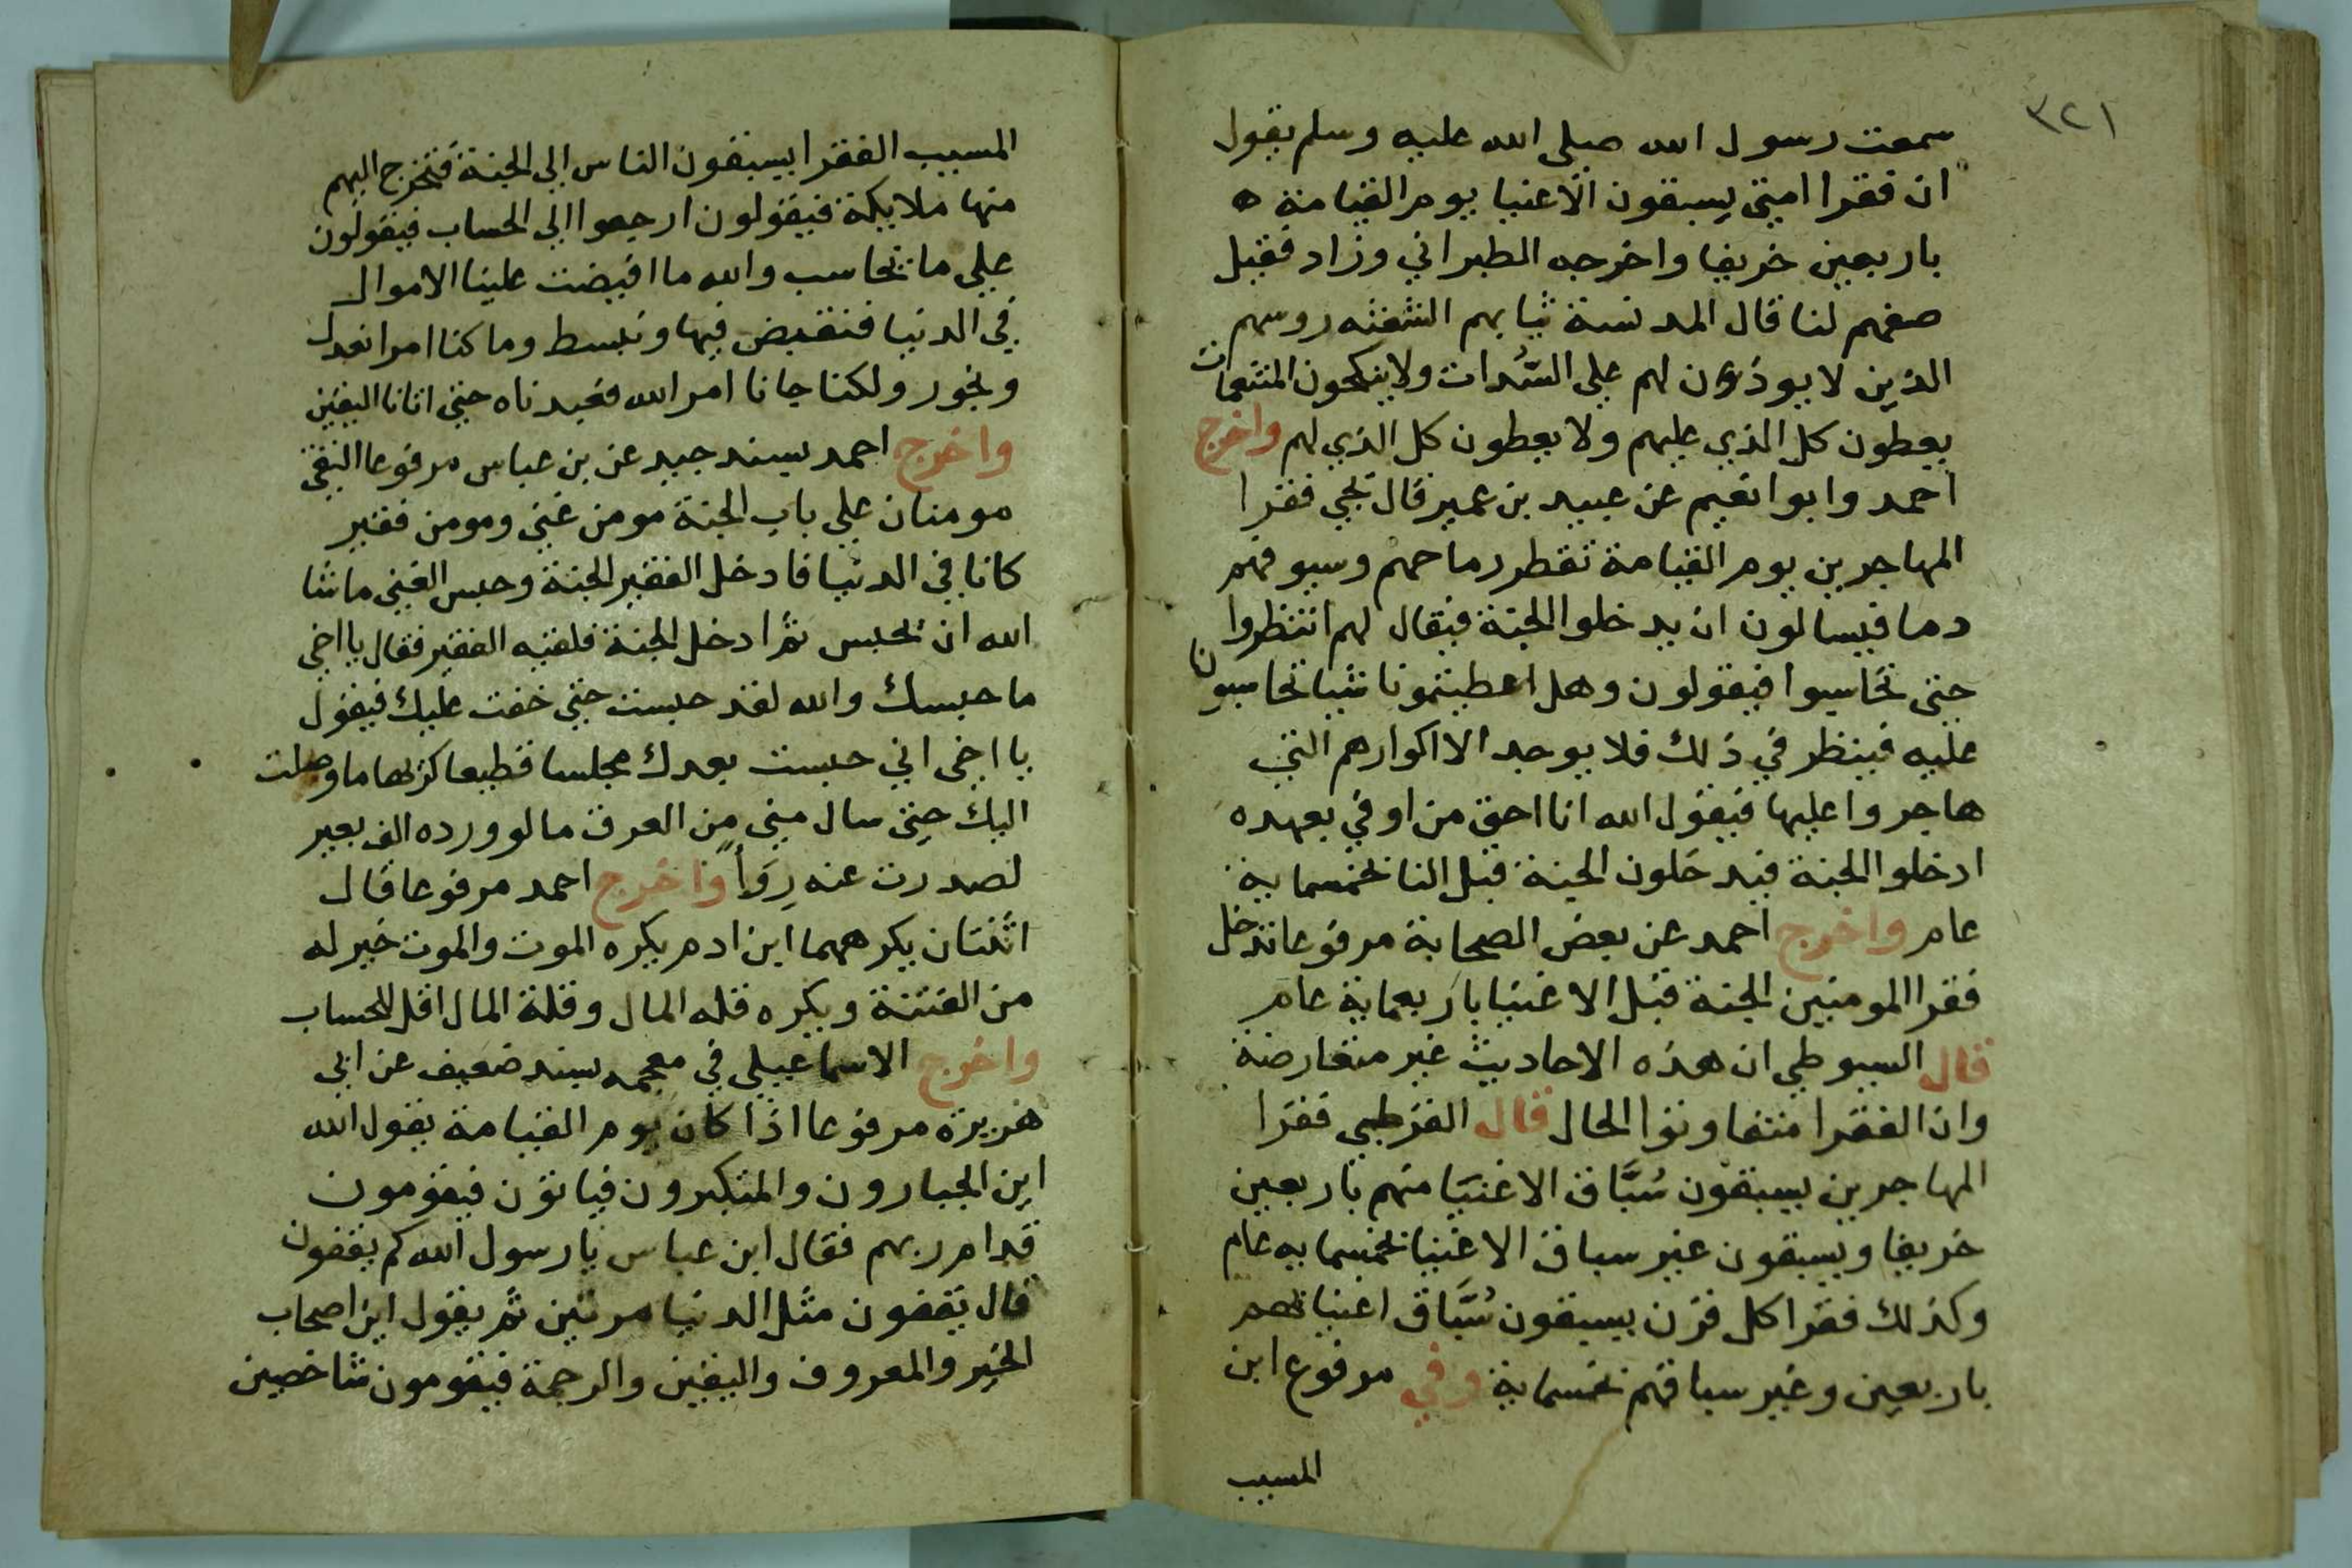 ٣٢١
سمعت رسول الله صلي الله عليه وسلم يقول
ان فقرا امتي يسبقون الاغنيا يوم القيامة ه
باربعين خريفا واخرجه الطبراني وزاد فقيل
صفهم لنا قال المدنسة ثيابهم الشعثه روسهم
الذين لا يوذن لهم علي السُّدات ولا ينكحون المنعمات
يعطون كل الذي عليهم ولا يعطون كل الذي لهم واخرج
احمد وابوا نعيم عن عبيد بن عمير قال تجي فقرا
المهاجرين يوم القيامة تقطر رماحهم وسيوفهم
دما فيسالون ان يدخلوا الجنة فيقال لهم انتظروا
حتي تحاسبوا فيقولون وهل اعطيتمونا شيا تحاسبونا
عليه فينظر في ذلك فلا يوجد الا اكوارهم التي
هاجروا عليها فيقول الله انا احق من اوفي بعهده
ادخلوا الجنة فيدخلون الجنة قبل النا بخمسماية
عام واخرج احمد عن بعض الصحابة مرفوعا تدخل
فقرا المومنين الجنة قبل الاغنيا باربعماية عام
قال السيوطي ان هذه الاحاديث غير متعارضة
وان الفقرا متفاوتوا الحال قال القرطبي فقرا
المهاجرين يسبقون سُبَّاق الاغنيا منهم باربعين
خريفا ويسبقون غير سباق الاغنيا بخمسمايه عام
وكذلك فقرا كل قرن يسبقون سُبَّاق اغنيائهم
باربعين وغير سباقهم بخمسماية وفي مرفوع ابن
المسيب
المسيب الفقرا يسبقون الناس الي الجنة فتخرج اليهم
منها ملايكة فيقولون ارجعوا الي الحساب فيقولون
علي ما نحاسب والله ما افيضت علينا الاموال
في الدنيا فنقبض فيها ونبسط وما كنا امرا نعدل
ونجور ولكنا جانا امر الله فعبدناه حتي اتانا اليقين
واخرج احمد بسند جيد عن بن عباس مرفوعا التقي
مومنان علي باب الجنة مومن غني ومومن فقير
كانا في الدنيا فادخل الفقير الجنة وحبس الغني ماشا
الله ان يحبس ثم ادخل الجنة فلقيه الفقير فقال يا اخي
ما حبسك والله لقد حبست حتي خفت عليك فيقول
يا اخي اني حبست بعدك مجلسا فطيعا كريها ما وصلت
اليك حتي سال مني من العرق ما لو ورده الف بعير
لصدرت عنه رِوَاً واخرج احمد مرفوعا قال
اثنتان يكرههما ابن ادم يكره الموت والموت خير له
من الفتنة ويكره قله المال وقلة المال اقل للحساب
واخرج الاسماعيلي في معجمه بسند ضعيف عن ابي
هريرة مرفوعا اذا كان يوم القيامة يقول الله
اين الجبارون والمتكبرون فياتون فيقومون
قدام ربهم فقال ابن عباس يا رسول الله كم يقفون
قال يقفون مثل الدنيا مرتين ثم يقول اين اصحاب
الخير والمعروف واليقين والرحمة فيقومون شاخصين